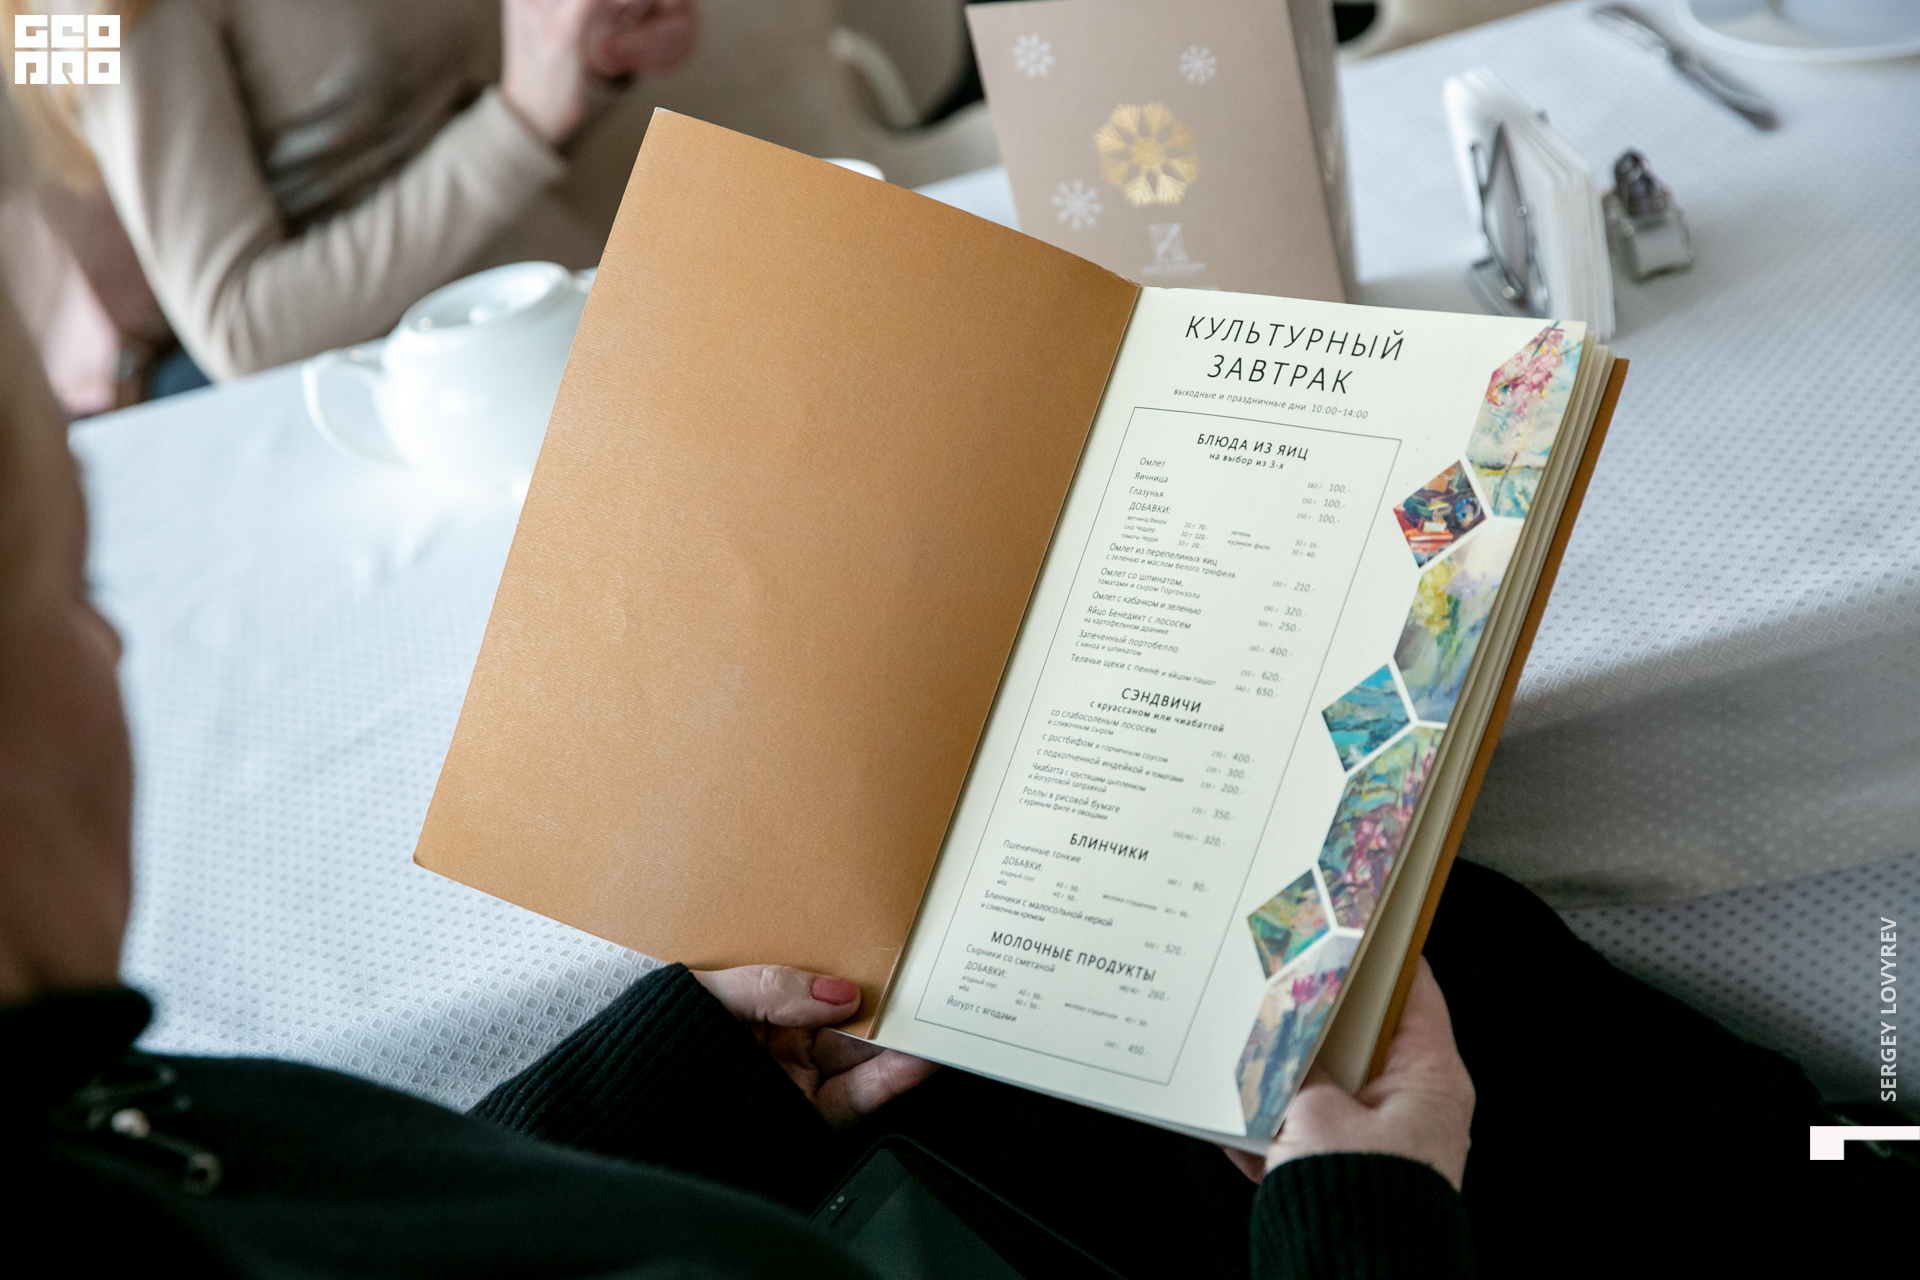 GEO
PRO
КУЛЬТУРНЫЙ
ЗАВТРАК
выходные и праздничные дни 10:00–14:00
БЛЮДА ИЗ ЯИЦ
на выбор из 3-х
Омлет 180 г 100.-
Яичница 150 г 100.-
Глазунья 150 г 100.-
ДОБАВКИ:
ветчина/бекон 30 г 70.- зелень 30 г 35.-
сыр Чеддер 30 г 120.- куриное филе 30 г 40.-
томаты Черри 30 г 20.-
Омлет из перепелиных яиц
с зеленью и маслом белого трюфеля 150 г 210.-
Омлет со шпинатом,
томатами и сыром Горгонзола 190 г 320.-
Омлет с кабачком и зеленью 300 г 250.-
Яйцо Бенедикт с лососем
на картофельном дранике 160 г 400.-
Запеченный портобелло
с киноа и шпинатом 620.-
Телячьи щеки с пенне и яйцом пашот 340 г 650.-
СЭНДВИЧИ
с круассаном или чиабаттой
со слабосоленым лососем
и сливочным сыром 235 г 400.-
с ростбифом и горчичным соусом 235 г 300.-
с подкопченной индейкой и томатами 235 г 200.-
Чиабатта с хрустящим цыпленком
и йогуртовой заправкой 235 г 350.-
Роллы в рисовой бумаге
с куриным филе и овощами 320.-
БЛИНЧИКИ
Пшеничные тонкие 180 г 90.-
ДОБАВКИ:
ягодный соус 40 г 50.- молоко сгущенное 40 г 50.-
мёд 40 г 50.-
Блинчики с малосольной неркой
и сливочным кремом 300 г 520.-
МОЛОЧНЫЕ ПРОДУКТЫ
Сырники со сметаной 260.-
ДОБАВКИ:
ягодный соус 40 г 50.- молоко сгущенное 40 г 50.-
мёд 40 г 50.-
Йогурт с ягодами 240 г 450.-
SERGEY LOVYREV